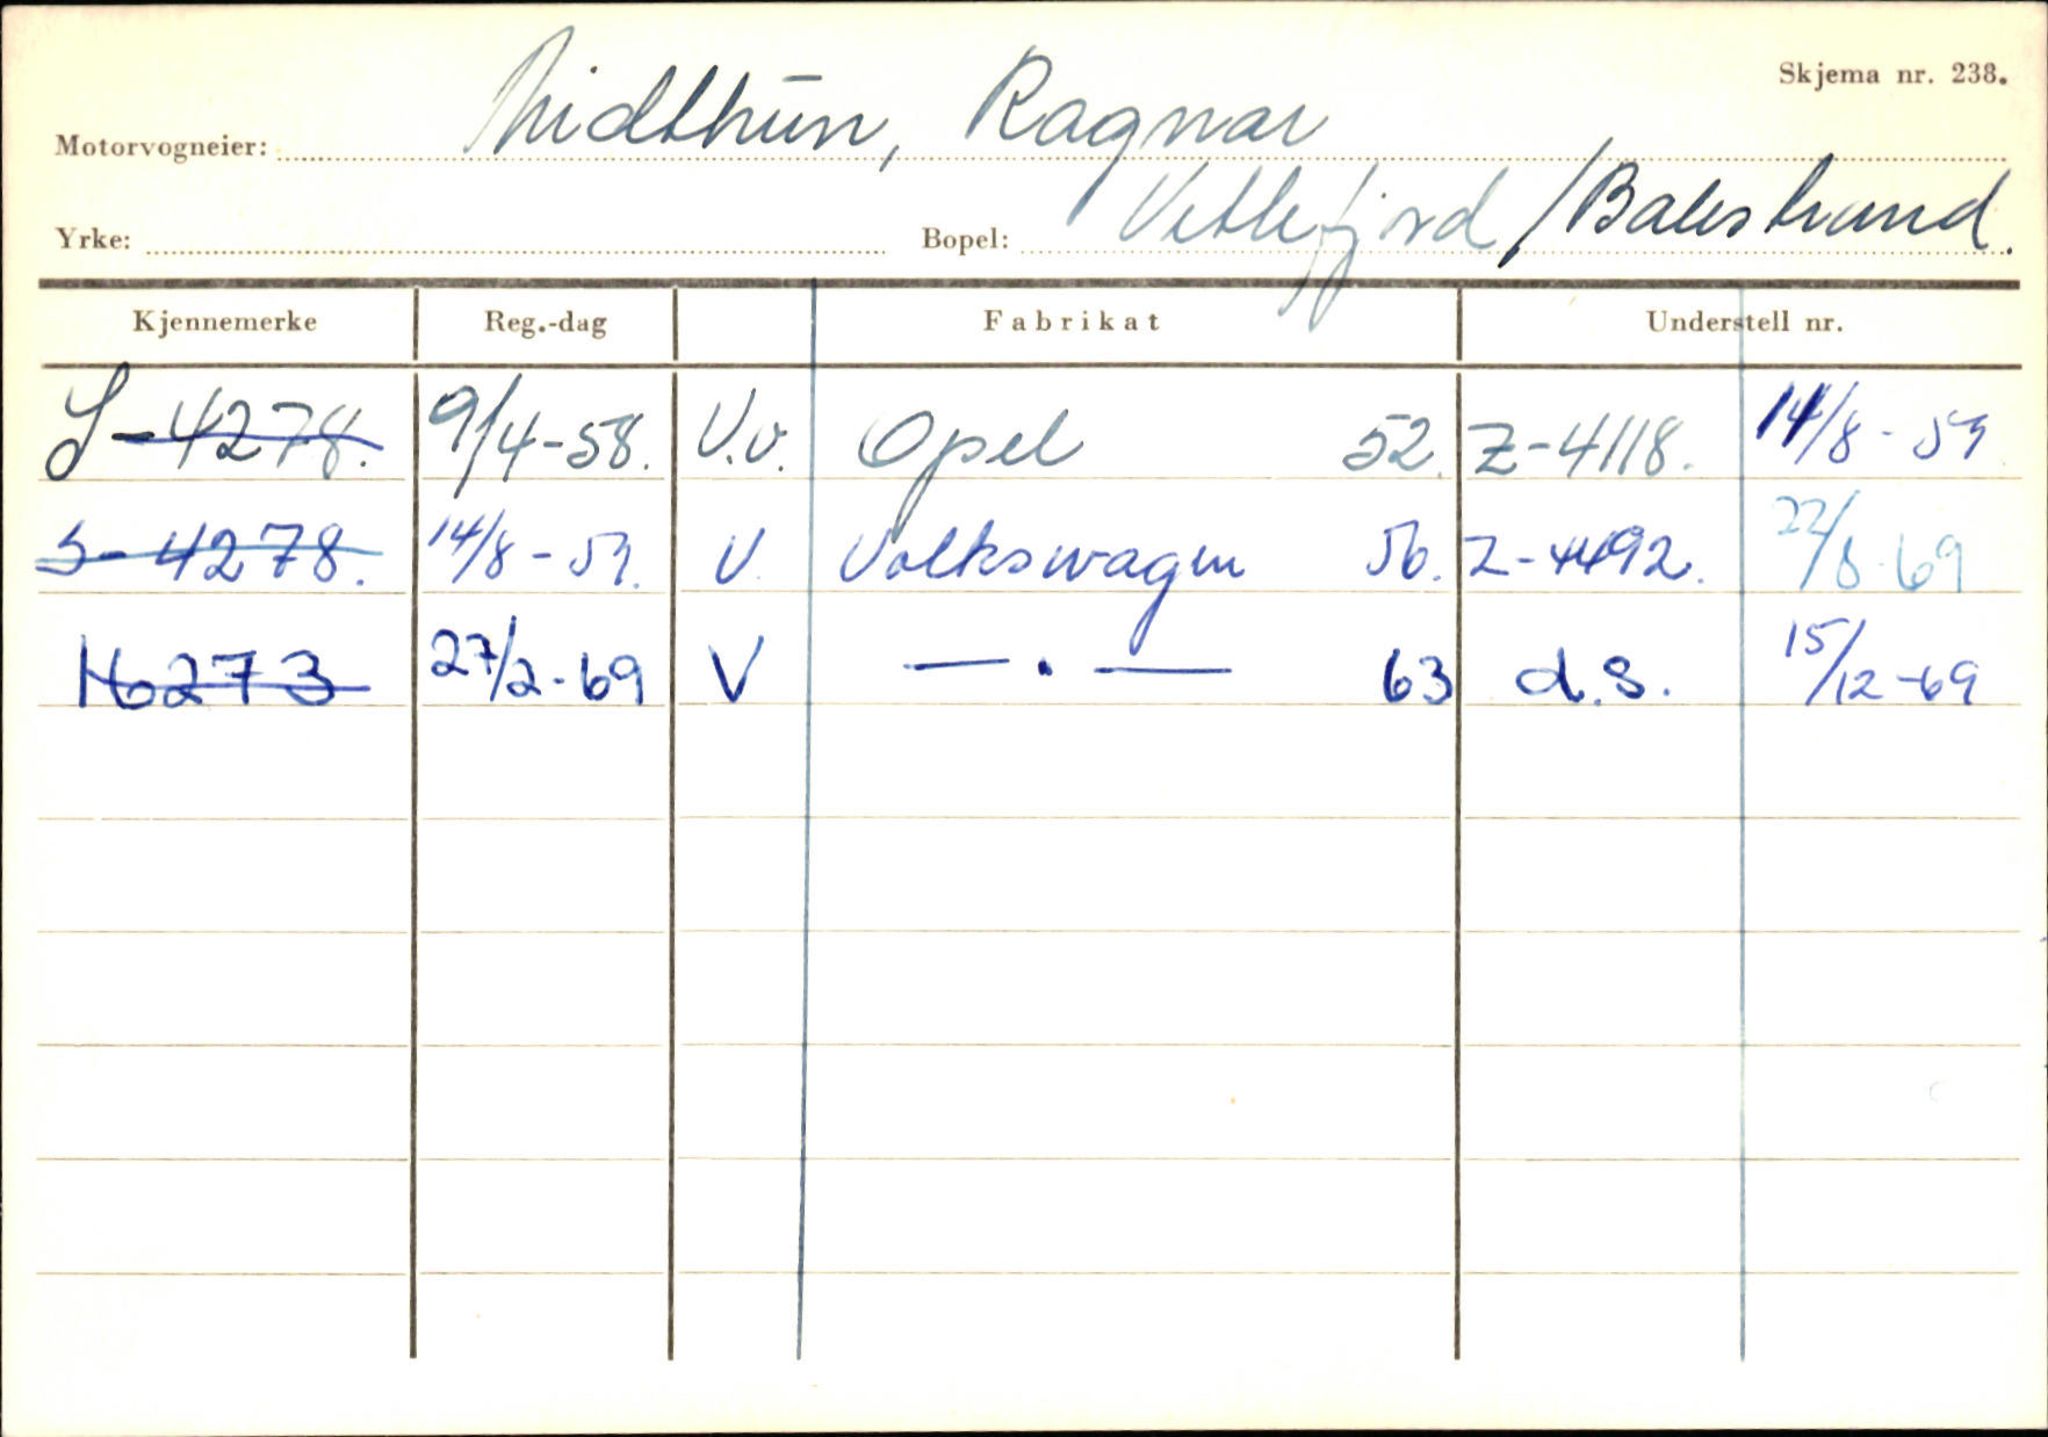 Skjema nr. 238.
Motorvogneier: Midthun, Ragnar
Yrke: Bopel: Vetlefjord / Balestrand.
Kjennemerke Reg.-dag Fabrikat Understell nr.
S-4278. 9/4-58. V.v. Opel 52. Z-4118. 14/8-59
S-4278. 14/8-59. V. Volkswagen 56. Z-4492. 22/8-69
16273 27/2-69 V —.— 63 d.s. 15/12-69